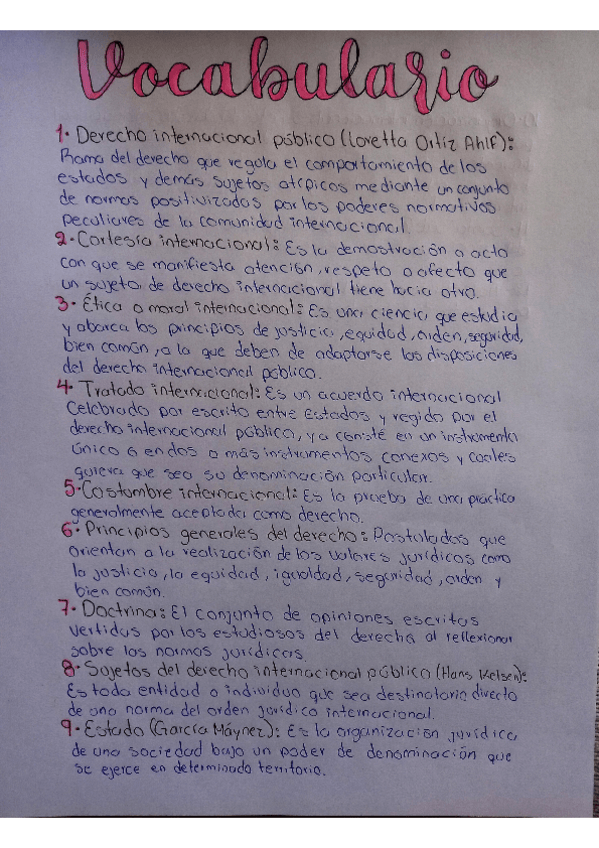 Vocabulario
1• Derecho internacional público (Loretta Ortiz Ahlf):
Rama del derecho que regula el comportamiento de los
estados y demás sujetos atípicos mediante un conjunto
de normas positivizadas por los poderes normativos
peculiares de la comunidad internacional.
2• Cortesía internacional: Es la demostración o acto
con que se manifiesta atención, respeto o afecto que
un sujeto de derecho internacional tiene hacia otro.
3• Ética o moral internacional: Es una ciencia que estudia
y abarca los principios de justicia, equidad, orden, seguridad,
bien común, a la que deben de adaptarse las disposiciones
del derecho internacional público.
4• Tratado internacional: Es un acuerdo internacional
Celebrado por escrito entre Estados y regido por el
derecho internacional público, ya consté en un instrumento
único ó en dos o más instrumentos conexos y cuales
quiera que sea su denominación particular.
5• Costumbre internacional: Es la prueba de una practica
generalmente aceptada como derecho.
6• Principios generales del derecho: Postulados que
orientan a la realización de los valores jurídicos como
la justicia, la equidad, igualdad, seguridad, orden y
bien común.
7• Doctrina: El conjunto de opiniones escritas
vertidas por los estudiosos del derecho al reflexionar
sobre las normas jurídicas.
8• Sujetos del derecho internacional público (Hans Kelsen):
Es toda entidad o individuo que sea destinatario directo
de una norma del orden jurídico internacional.
9• Estado (García Máynez): Es la organización jurídica
de una sociedad bajo un poder de denominación que
se ejerce en determinado territorio.